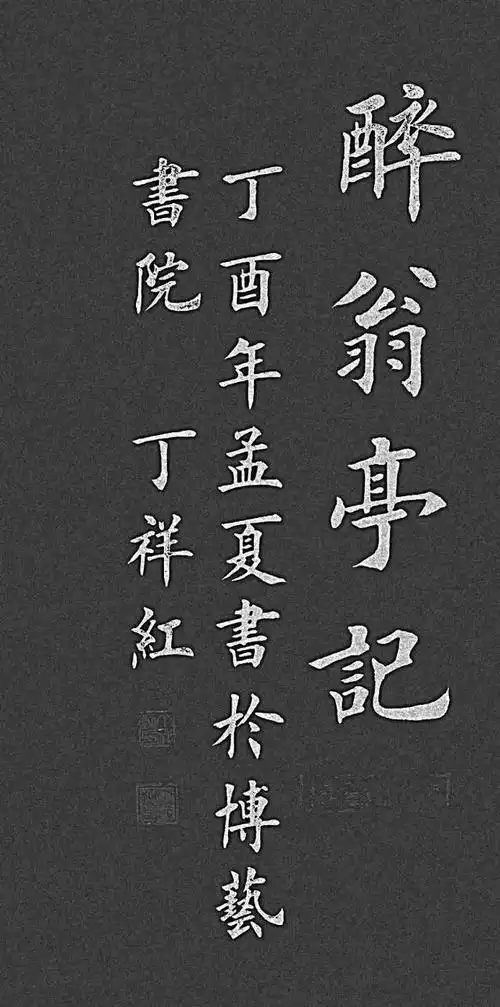 醉翁亭記
丁酉年孟夏書於博藝
書院 丁祥紅